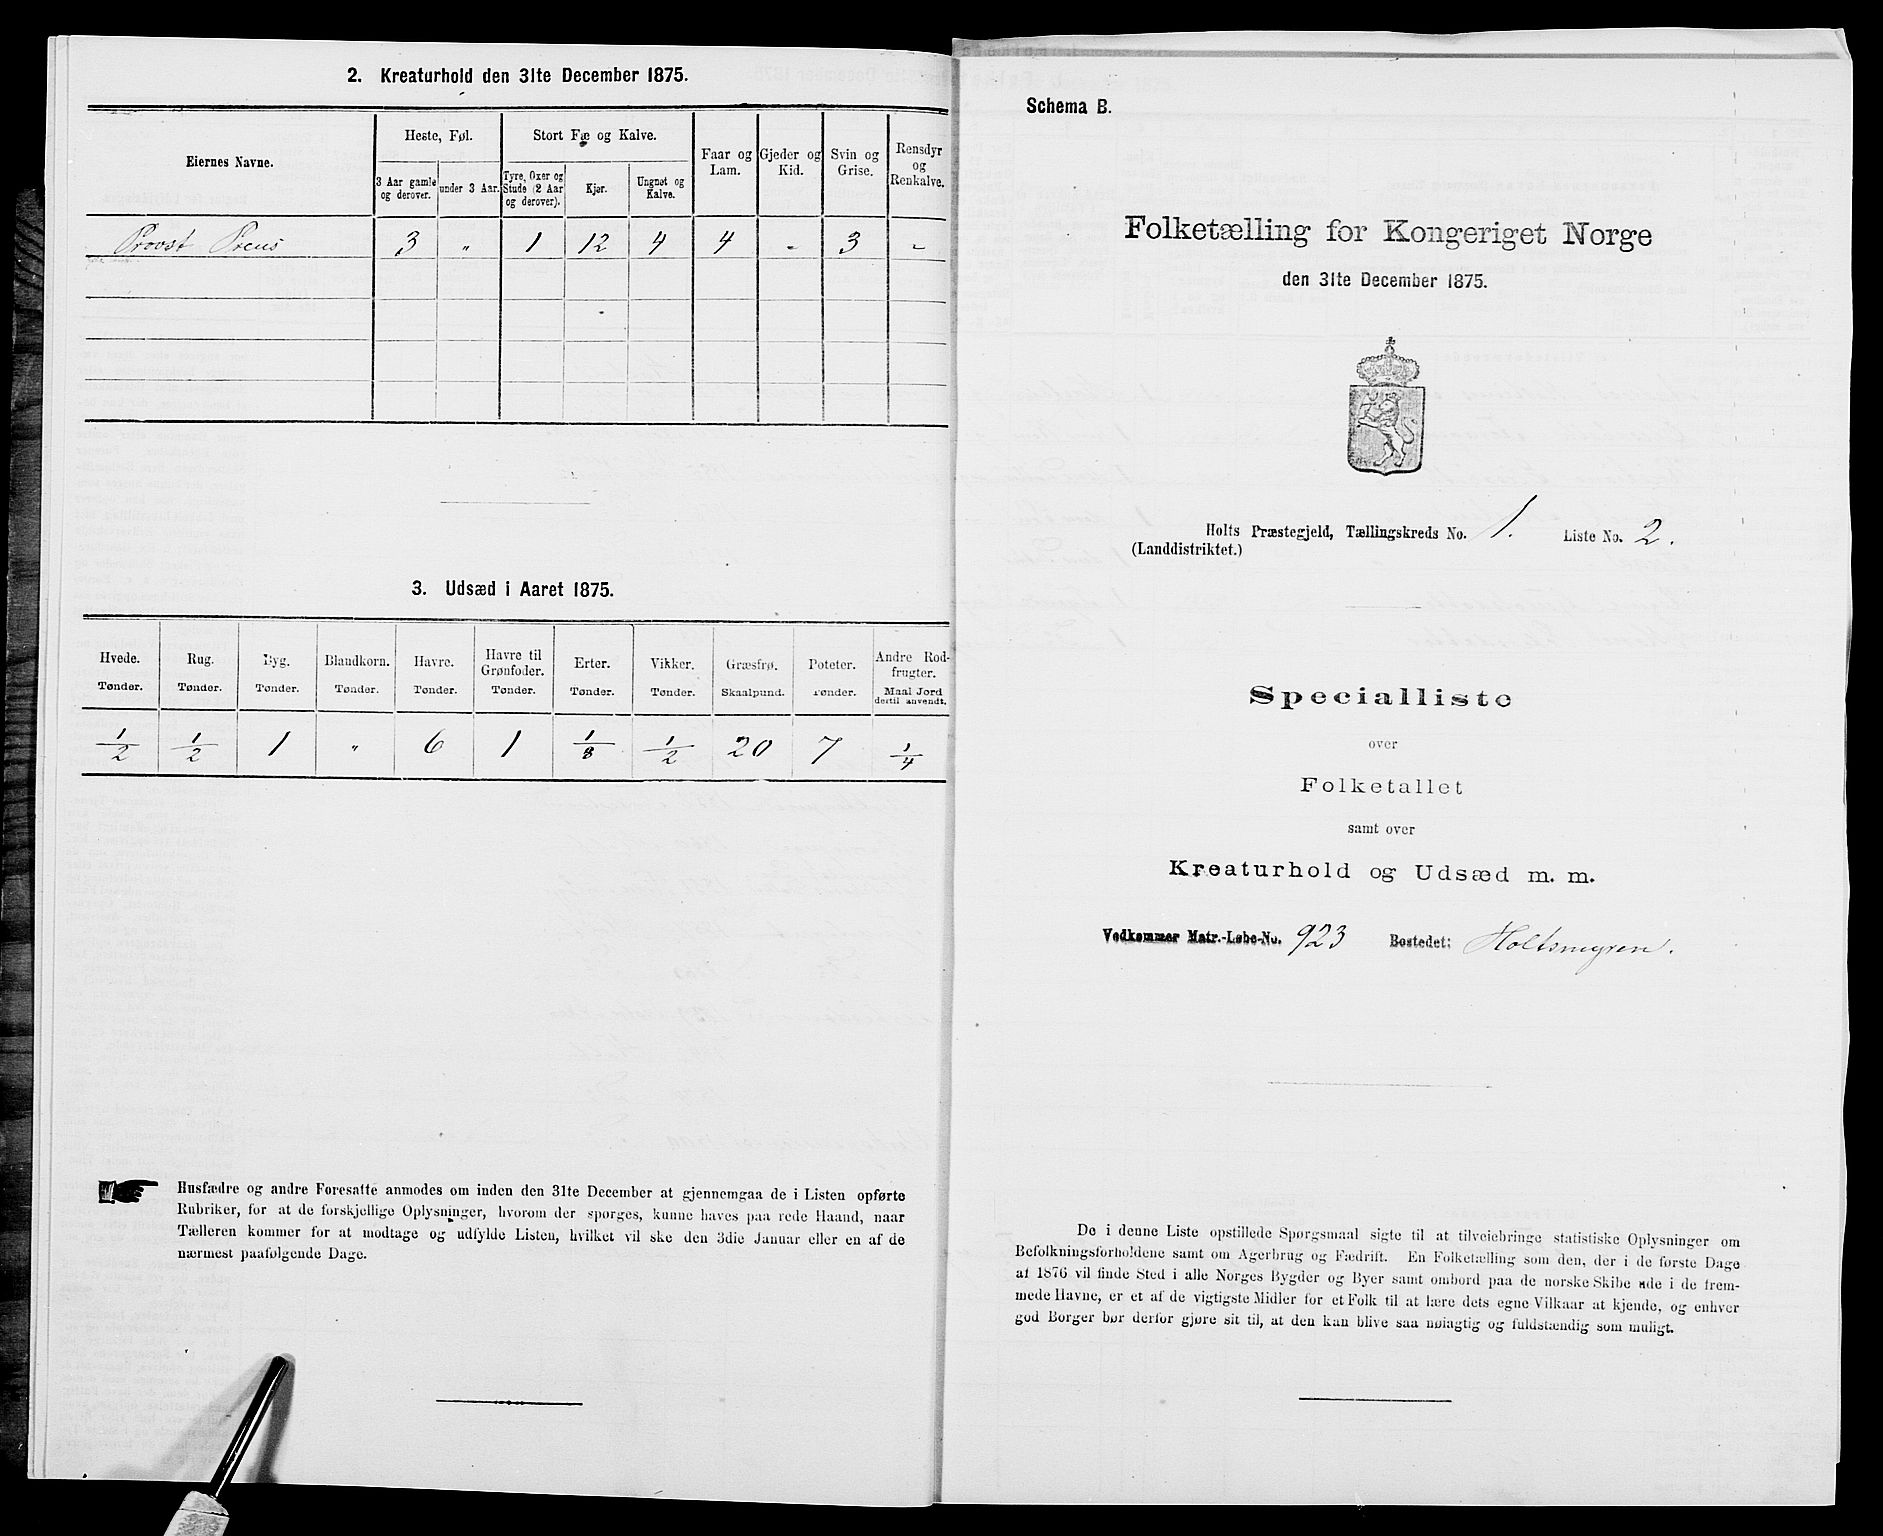 2. Kreaturhold den 31te December 1875.
Eiernes Navne.
Heste, Føl.
3 Aar gamle og derover.
under 3 Aar.
Stort Fæ og Kalve.
Tyre, Oxer og Stude (2 Aar og derover).
Kjør.
Ungnøt og Kalve.
Faar og Lam.
Gjeder og Kid.
Svin og Grise.
Rensdyr og Renkalve.
Provst Preus 3 " 1 12 4 4 - 3 -
3. Udsæd i Aaret 1875.
Hvede. Rug. Byg. Blandkorn. Havre. Havre til Grønfoder. Erter. Vikker. Græsfrø. Poteter. Andre Rodfrugter.
Tønder. Tønder. Tønder. Tønder. Tønder. Tønder. Tønder. Tønder. Skaalpund. Tønder. Maal Jord dertil anvendt.
1/2 1/2 1 " 6 1 1/8 1/2 20 7 1/4
Husfædre og andre Foresatte anmodes om inden den 31te December at gjennemgaa de i Listen opførte
Rubriker, for at de forskjellige Oplysninger, hvorom der spørges, kunne haves paa rede Haand, naar
Tælleren kommer for at modtage og udfylde Listen, hvilket vil ske den 3die Januar eller en af de
nærmest paafølgende Dage.
Schema B.
Folketælling for Kongeriget Norge
den 31te December 1875.
Holts Præstegjeld, Tællingskreds No. 1. Liste No. 2.
(Landdistriktet.)
Specialliste
over
Folketallet
samt over
Kreaturhold og Udsæd m. m.
Vedkommer Matr.-Løbe-No. 923 Bostedet: Holtsmyren.
De i denne Liste opstillede Spørgsmaal sigte til at tilveiebringe statistiske Oplysninger om
Befolkningsforholdene samt om Agerbrug og Fædrift. En Folketælling som den, der i de første Dage
af 1876 vil finde Sted i alle Norges Bygder og Byer samt ombord paa de norske Skibe ude i de frem-
mede Havne, er et af de vigtigste Midler for et Folk til at lære dets egne Vilkaar at kjende, og enhver
god Borger bør derfor gjøre sit til, at den kan blive saa nøiagtig og fuldstændig som muligt.